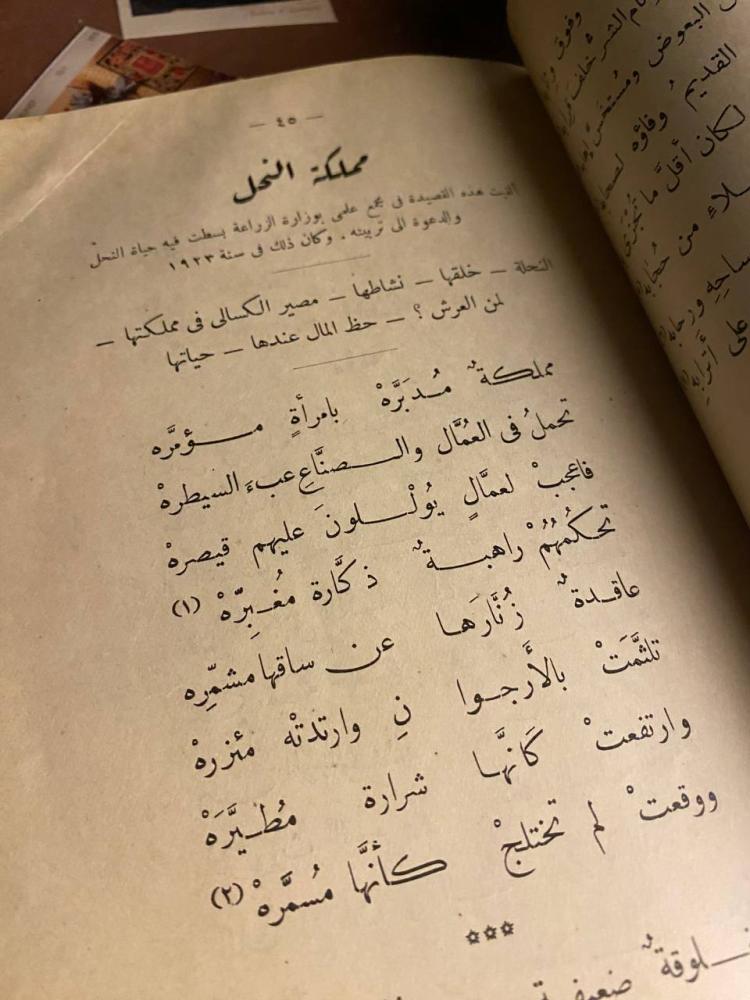 — ٤٥ —
مملكة النحل
ألقيت هذه القصيدة فى مجمع علمى بوزارة الزراعة بسطت فيه حياة النحل
والدعوة الى تربيته . وكان ذلك فى سنة ١٩٢٣
النحلة – خلقها – نشاطها – مصير الكسالى فى مملكتها –
لمن العرش ؟ – حظ المال عندها – حياتها
مملكةٌ مُدبَّرَهْ بامرأةٍ مؤمَّره
تحملُ فى العُمَّال والصنَّاعِ عبءَ السيطرهْ
فاعجبْ لعمالٍ يُوَلُّونَ عليهم قيصرهْ
تحكُمُهُمْ راهبةٌ ذكَّارة مُغبِّرهْ (١)
عاقدةٌ زُنَّارَها عن ساقها مشمِّره
تلثَّمَتْ بالأُرجوا نِ وارتدتْه مئزرهْ
وارتفعتْ كَأنَّها شرارة مُطيَّرَهْ
ووقعتْ لم تختلجْ كأنَّها مُسمَّرهْ (٢)
***
ضعيفة
وفوق
البعوض
القديم وفاؤه
لكان أقلَّ ما
من
على أترابه